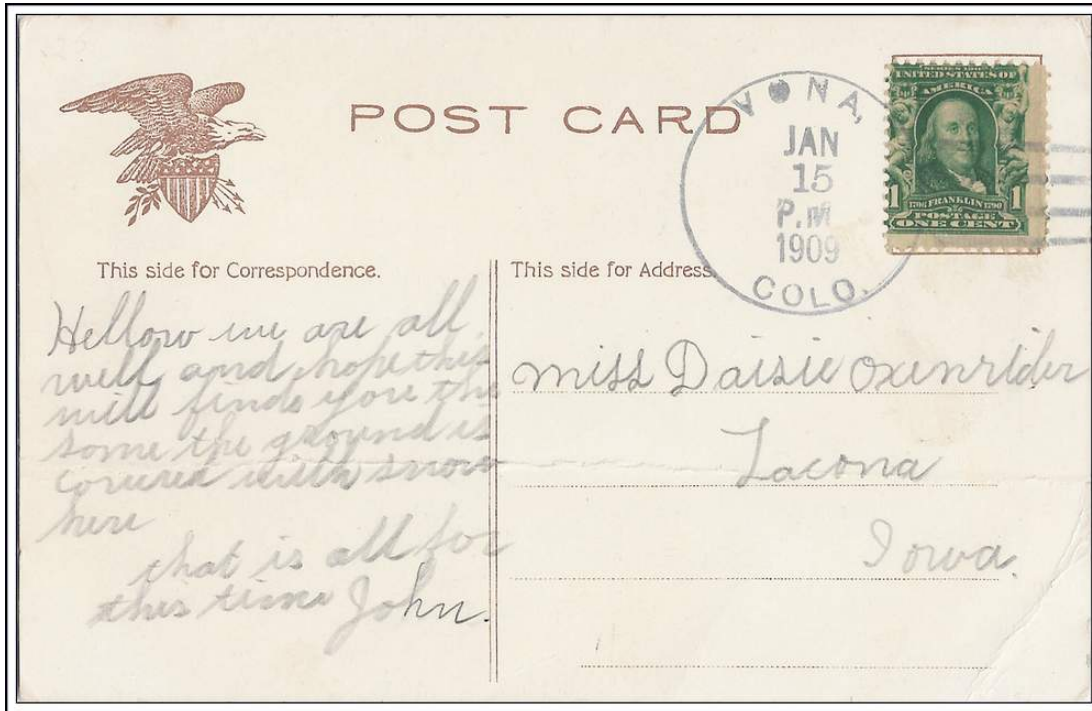 POST CARD
VONA,
JAN
15
P.M
1909
COLO.
SERIES 1902
UNITED STATES OF
AMERICA
1 1706 FRANKLIN 1790 1
POSTAGE
ONE CENT
This side for Correspondence.
Hellow we are all
well and hope this
will finds you the
some the ground is
covered with snow
here
that is all for
this time John.
This side for Address.
miss Daisie Oxenrider
Lacona
Iowa.